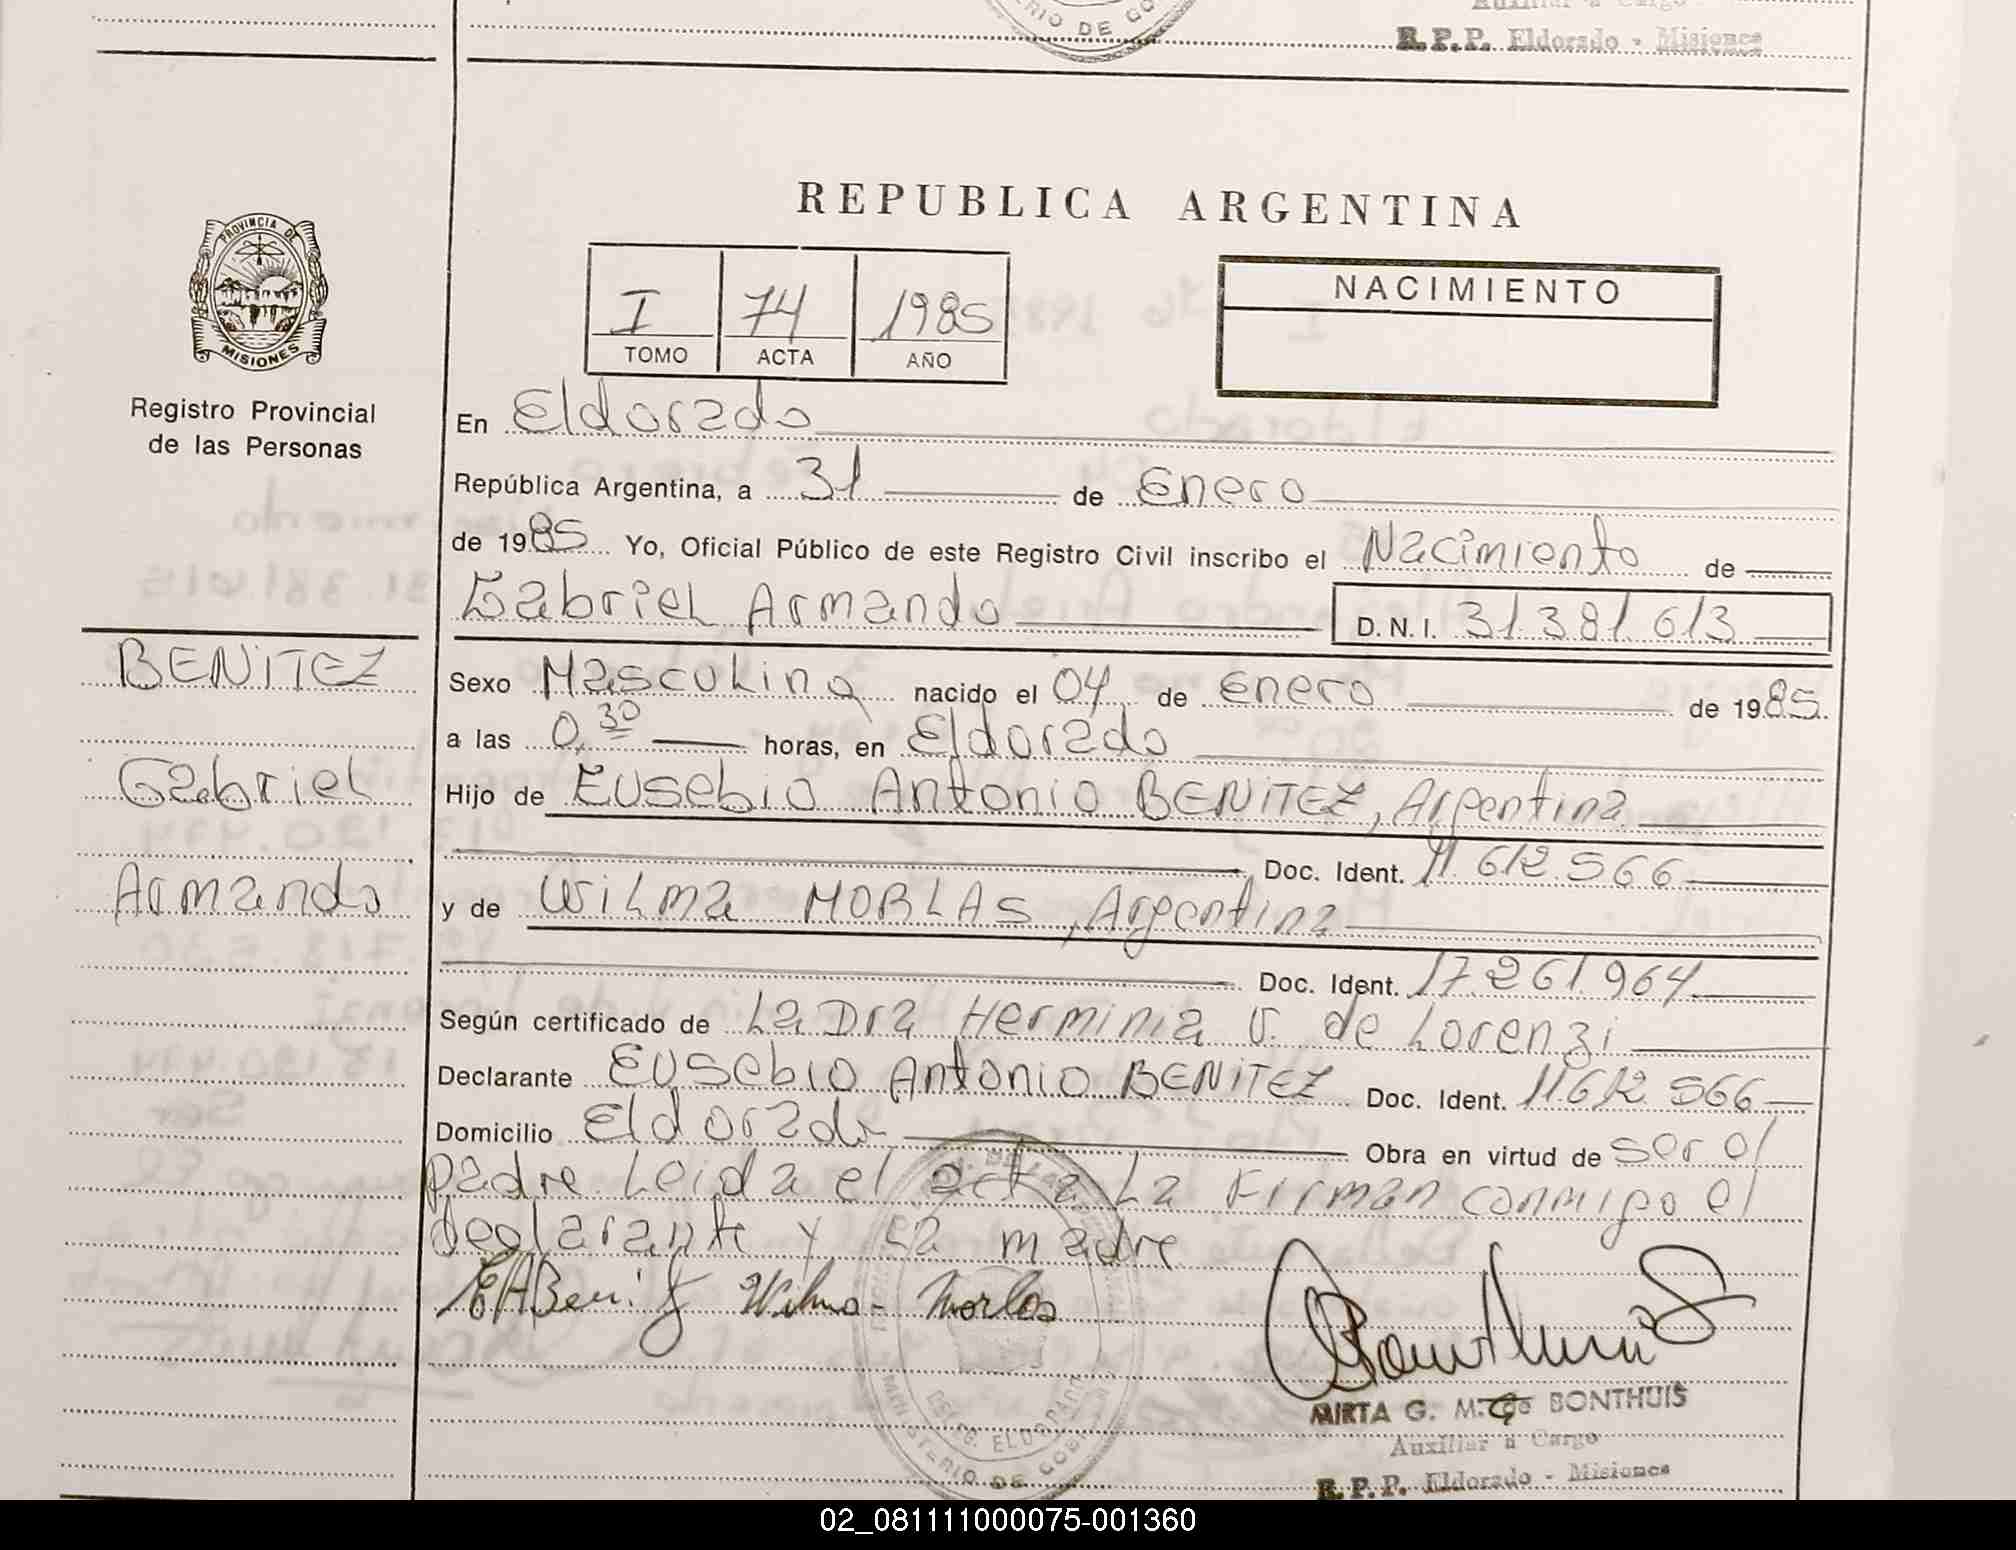 R.P.P. Eldorado - Misiones
REPUBLICA ARGENTINA
PROVINCIA DE
MISIONES
I 74 1985
TOMO ACTA AÑO
NACIMIENTO
Registro Provincial
de las Personas
En Eldorado
República Argentina, a 31 de Enero
de 1985 Yo, Oficial Público de este Registro Civil inscribo el Nacimiento de
Gabriel Armando D.N.I. 31.381.613
BENITEZ
Gabriel
Armando
Sexo Masculino nacido el 04 de Enero de 1985
a las 0,30 horas, en Eldorado
Hijo de Eusebio Antonio BENITEZ, Argentina
Doc. Ident. 11.612.566
y de Wilma MORLAS, Argentina
Doc. Ident. 17.261.964
Según certificado de La Dra Herminia V. de Lorenzi
Declarante Eusebio Antonio BENITEZ Doc. Ident. 11.612.566
Domicilio Eldorado Obra en virtud de ser el
padre Leida el acta La Firman conmigo el
declarante y la madre
EABenitez Wilma - Morlas
MIRTA G. M. de BONTHUIS
Auxiliar a Cargo
R.P.P. Eldorado - Misiones
02_081111000075-001360